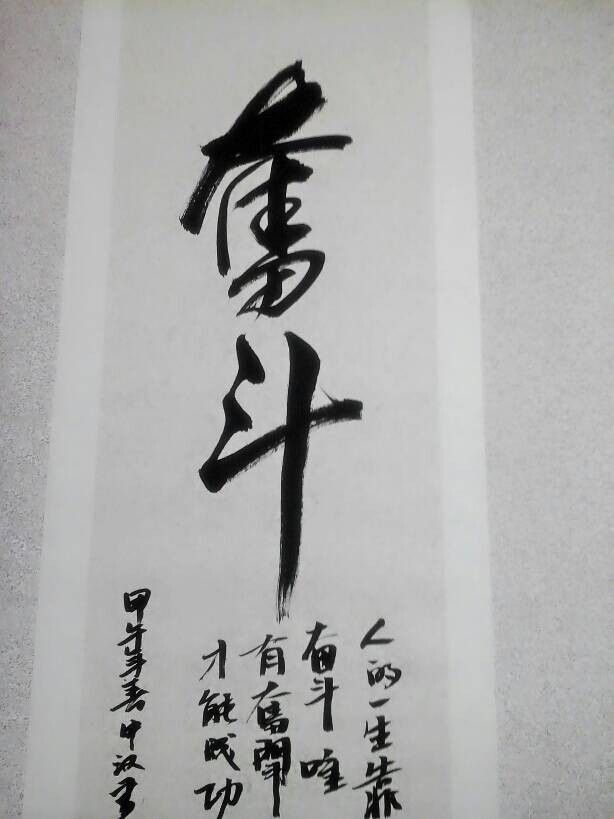 奮斗
人的一生靠
奋斗唯
有奮鬪
才能成功
甲午年春申汉书